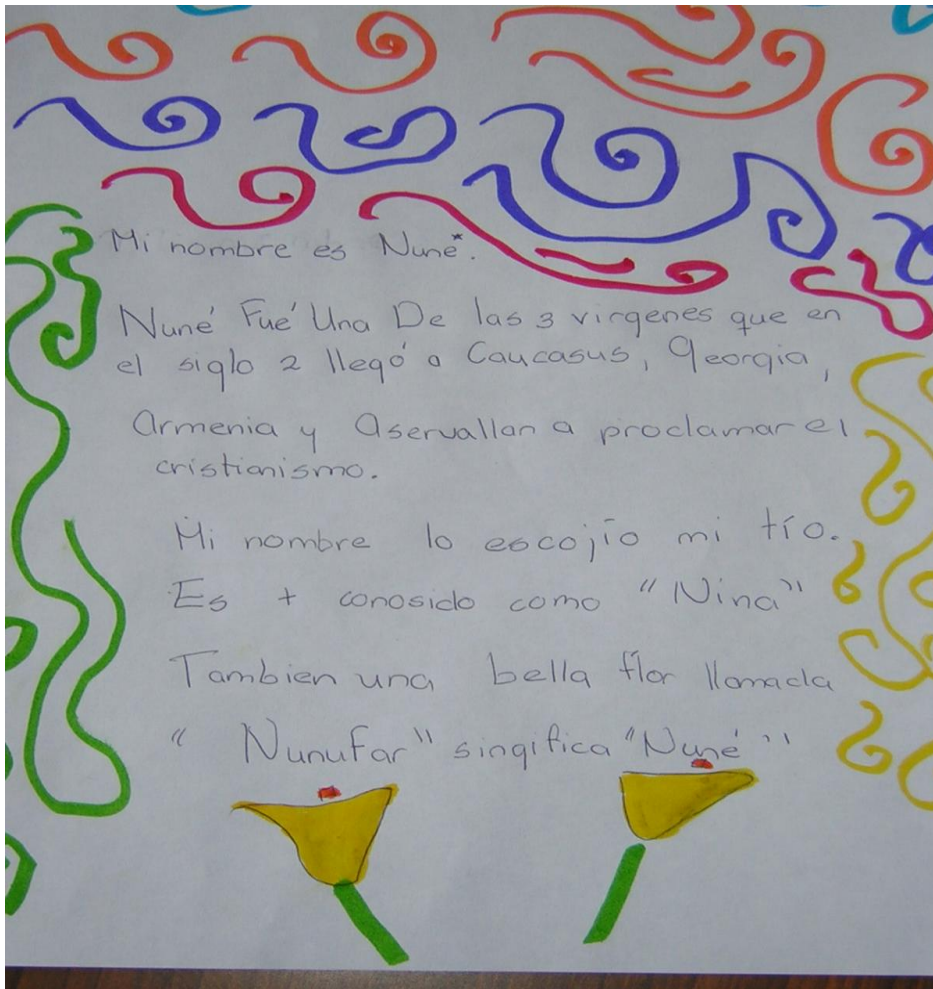 Mi nombre es Nuné*.
Nuné Fué Una De las 3 virgenes que en
el siglo 2 llegó a Caucasus, Georgia,
Armenia y Aservallan a proclamar el
cristianismo.
Mi nombre lo escojío mi tío.
Es + conosido como "Nina"
Tambien una bella flor llamada
"Nunufar" singifica "Nuné"